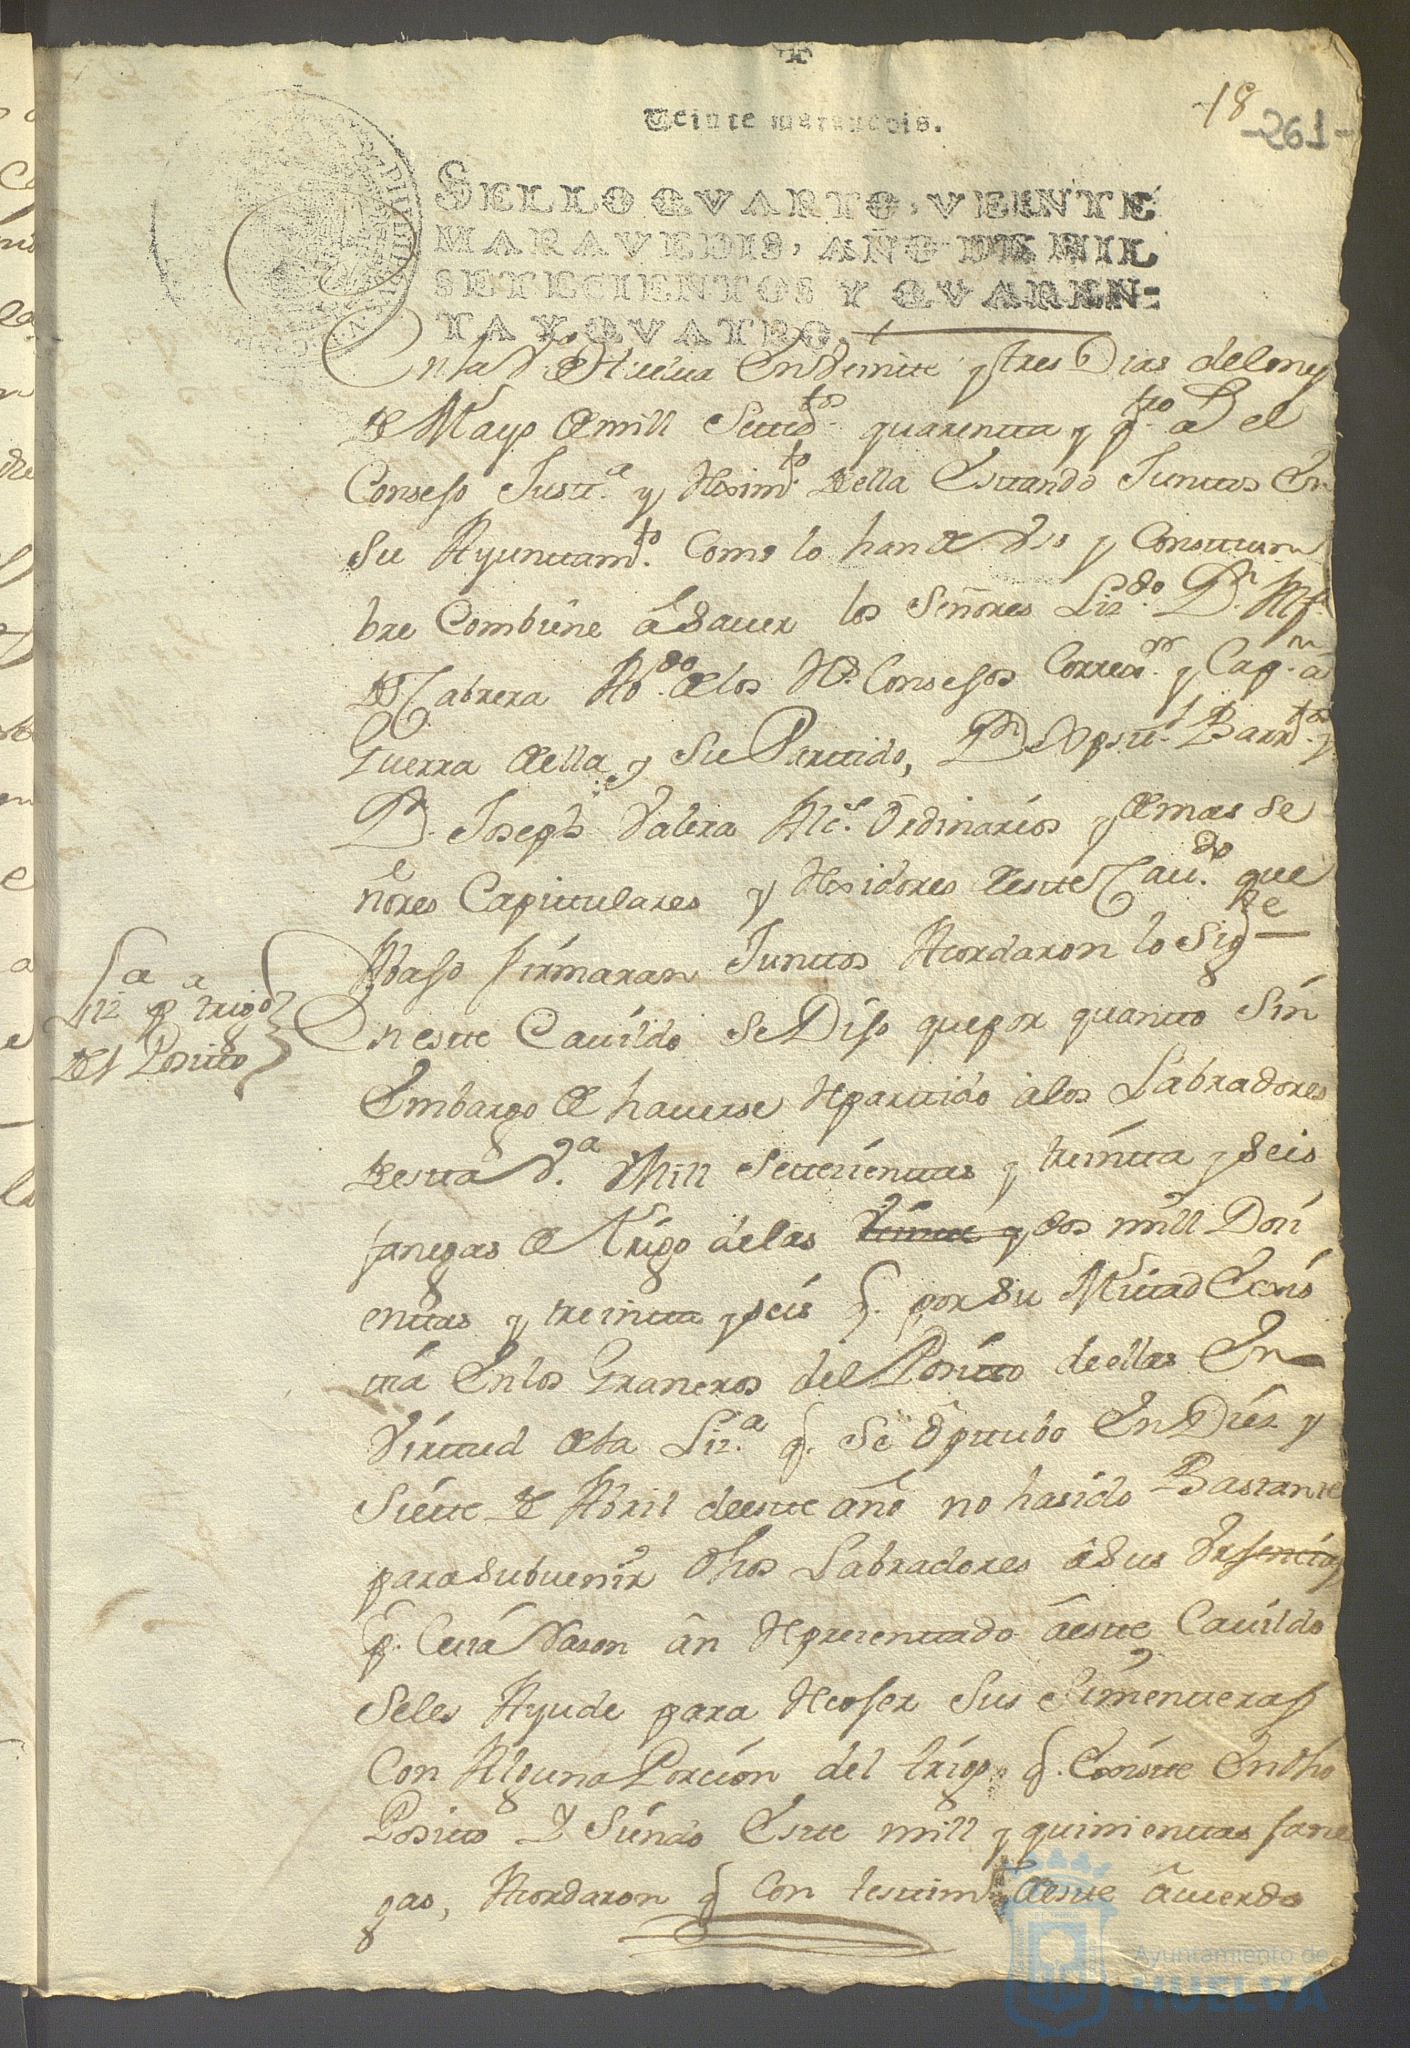 18
-261-
Veinte maravedis.
SELLO QVARTO, VEINTE
MARAVEDIS, AÑO DE MIL
SETECIENTOS Y QVAREN-
TA Y QVATRO.
En la V.ª de Huelva En Veinte y tres Dias del mes
de Mayo de mill Settez.tos quarenta y q.tro a.s el
Consejo Justt.ª y Reximto. de ella Estando Junttos En
su Ayunttam.to Como lo han de Vso y Consttum
bre Combiene â Sauer los Señores Liz.do D.n Alf.
de Cabrera Ab.do de los R.s Consejos Correx.or y Cap.n a
Guerra de ella y Su Parttido, D.n Barr.tos y
D.n Joseph Valera Alc.s Ordinarios y demas Se
ñores Capittulares y Rexidores de estte Cau.do que
Abajo firmaran Junttos Acordaron lo Sig.te
Liz.ª p.ª trigo
del Positto
En estte Cauildo Se Dijo que por quantto Sin
Embargo de hauerse Repartido a los Labradores
de estta V.ª Mill Settecienttas y treintta y seis
fanegas de trigo de las Veintte y dos mill Doci
enttas y treintta y seis q. por su Mitad Exis
tia En los Graneros del Positto de ellas En
Virttud de la Liz.ª q. Se Obttubo En Diez y
Siette de Abril de estte año no ha sido Bastante
para Subuenir dhos Labradores â Sus Vrjencias
p. Cuia Rason an Representtado â estte Cauildo
Se les Ayude para Recojer Sus Simentteras
Con Alguna Porcion del trigo q. Existte En dho
Positto Y Siendo Estte mill y quinienttas fane
gas, Acordaron q Con testtim.º de estte Acuerdo
Ayuntamiento de
HUELVA